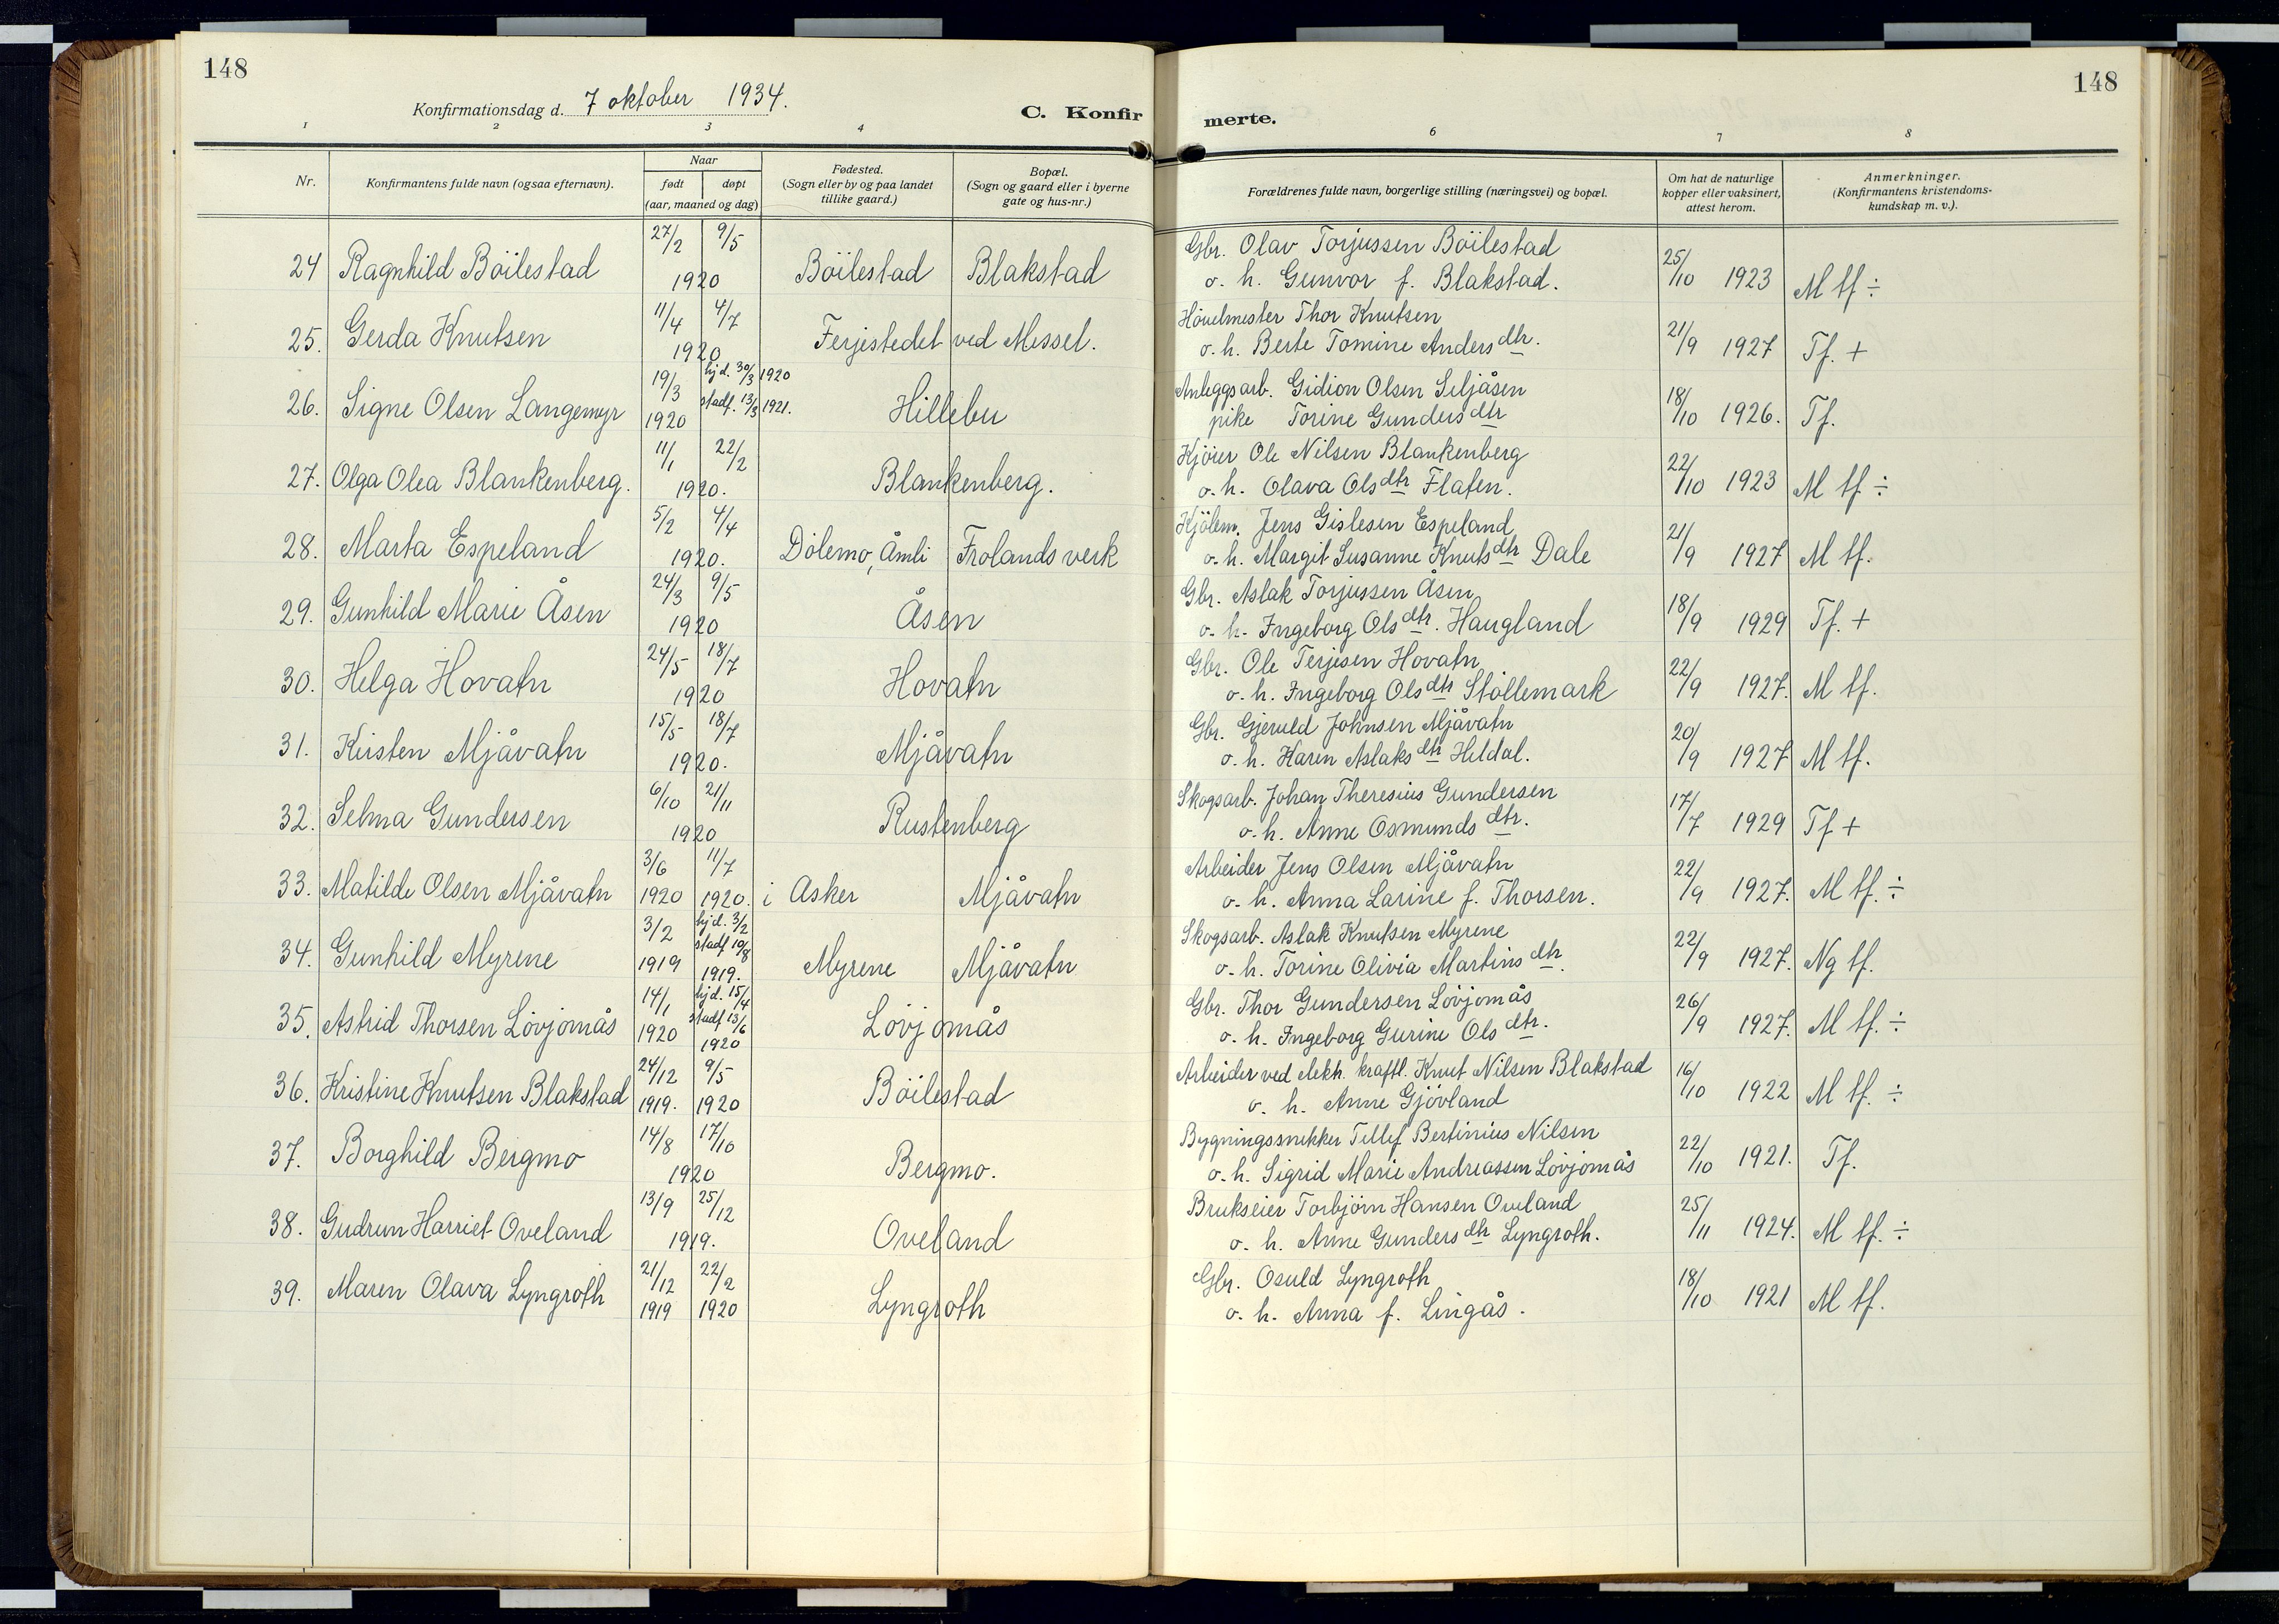 148
148
Konfirmationsdag d. 7 oktober 1934.
C. Konfir
merte.
1 2 3 4 6 7 8
Nr.
Konfirmantens fulde navn (ogsaa efternavn).
Naar
født døpt
(aar, maaned og dag)
Fødested.
(Sogn eller by og paa landet
tillike gaard.)
Bopæl.
(Sogn og gaard eller i byerne
gate og hus-nr.)
Forældrenes fulde navn, borgerlige stilling (næringsvei) og bopæl.
Om hat de naturlige
kopper eller vaksinert,
attest herom.
Anmerkninger.
(Konfirmantens kristendoms-
kundskap m. v.).
27/2 9/5 Gbr. Olav Torjussen Böilestad
24 Ragnhild Böilestad 1920 Böilestad Blakstad o. h. Gunvor f. Blakstad. 25/10 1923 M tf ÷
11/4 4/7 Hövelmester Thor Knutsen
25. Gerda Knutsen 1920 Ferjestedet ved Messel. o. h. Berte Tomine Andersdtr. 21/9 1927 Tf. +
19/3 hjd. 30/3 1920 Anleggsarb. Gidion Olsen Seljåsen
26. Signe Olsen Langemyr 1920 stadf. 13/3 1921. Hillebu pike Torine Gundersdtr 18/10 1926. Tf.
11/1 22/2 Kjörer Ole Nilsen Blankenberg
27. Olga Olea Blankenberg. 1920. Blankenberg. o. h. Olava Olsdtr Flaten. 22/10 1923 M tf ÷
5/2 4/4 Kjölem. Jens Gislesen Espeland
28. Marta Espeland 1920. Dölemo, Åmli Frolands verk o. h. Margit Susanne Knutsdtr Dale 21/9 1927 M tf.
24/3 9/5 Gbr. Aslak Torjussen Åsen
29. Gunhild Marie Åsen 1920 Åsen o. h. Ingeborg Olsdtr. Haugland 18/9 1929 Tf. +
24/5 18/7 Gbr. Ole Terjesen Hovatn
30. Helga Hovatn 1920 Hovatn o. h. Ingeborg Olsdtr Stöllemark 22/9 1927. M tf.
15/5 18/7 Gbr. Gjeruld Johnsen Mjåvatn
31. Kirsten Mjåvatn 1920. Mjåvatn o. h. Karen Aslaksdtr Heldal. 20/9 1927 M tf.
6/10 21/11 Skogsarb. Johan Theresius Gundersen
32. Selma Gundersen 1920 Rustenberg o. h. Anne Osmundsdtr. 17/7 1929 Tf +
3/6 11/7 Arbeider Jens Olsen Mjåvatn
33. Matilde Olsen Mjåvatn 1920 1920. i Asker Mjåvatn o. h. Anna Larine f. Thorsen. 22/9 1927. M tf. ÷
3/2 hjd. 3/2 stadf 10/8 Skogsarb. Aslak Knutsen Myrene
34. Gunhild Myrene 1919 1919. Myrene Mjåvatn o. h. Torine Olivia Martinsdtr. 22/9 1927. Ng tf.
14/1 hjd. 15/4 stadf 13/6 Gbr. Thor Gundersen Lövjomås
35. Astrid Thorsen Lövjomås 1920 1920 Lövjomås o. h. Ingeborg Gurine Olsdtr. 26/9 1927. M tf. ÷
24/12 9/5 Arbeider ved elekh. kraftl. Knut Nilsen Blakstad
36. Kristine Knutsen Blakstad 1919. 1920 Böilestad o. h. Anne Gjövland 16/10 1922 M tf. ÷
14/8 17/10 Bygningssnekker Tellef Bertinius Nilsen
37. Borghild Bergmo 1920 Bergmo. o. h. Sigrid Marie Andreassen Lövjomås 22/10 1921. Tf.
13/9 25/12 Brukseier Torbjörn Hansen Oveland
38. Gudrun Harriet Oveland 1919. Oveland o. h. Anne Gundersdtr Lyngroth. 25/11 1924. M tf. ÷
21/12 22/2 Gbr. Osuld Lyngroth
39. Maren Olava Lyngroth 1919 1920 Lyngroth o. h. Anna f. Lingås. 18/10 1921 M tf.